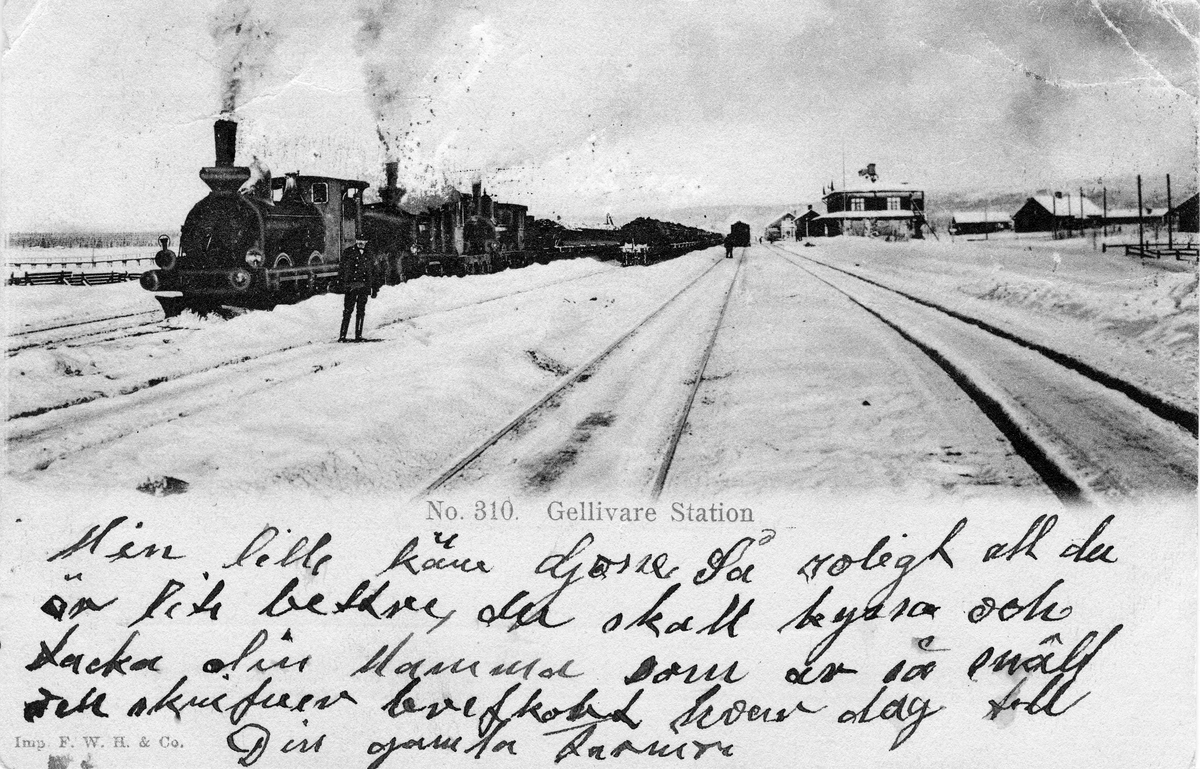 No. 310. Gellivare Station
Min lille käre Gjösse Så roligt att du
är lite bettre, du skall kyssa och
tacka din Mamma som är så snäll
och skrifver brefkort hvar dag till
Imp. F. W. H. & Co.
Din gamla